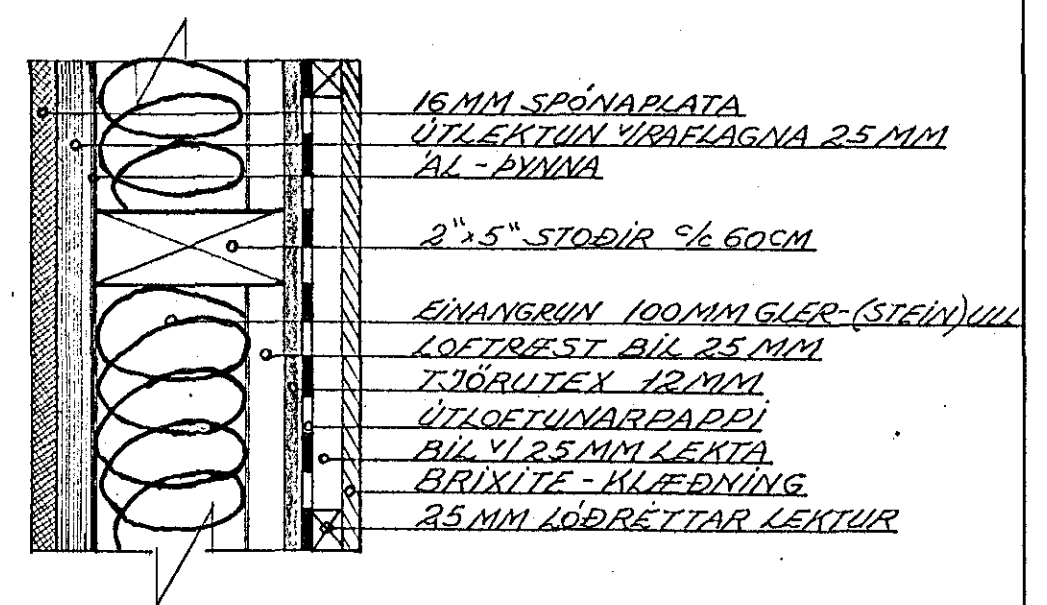 16 MM SPÓNAPLATA
ÚTLEKTUN V/RAFLAGNA 25 MM
ÁL - ÞYNNA
2"x5" STOÐIR c/c 60 CM
EINANGRUN 100 MM GLER-(STEIN)ULL
LOFTRÆST BIL 25 MM
TJÖRUTEX 12 MM
ÚTLOFTUNARPAPPI
BIL V/ 25 MM LEKTA
BRIXITE - KLÆÐNING
25 MM LÓÐRÉTTAR LEKTUR